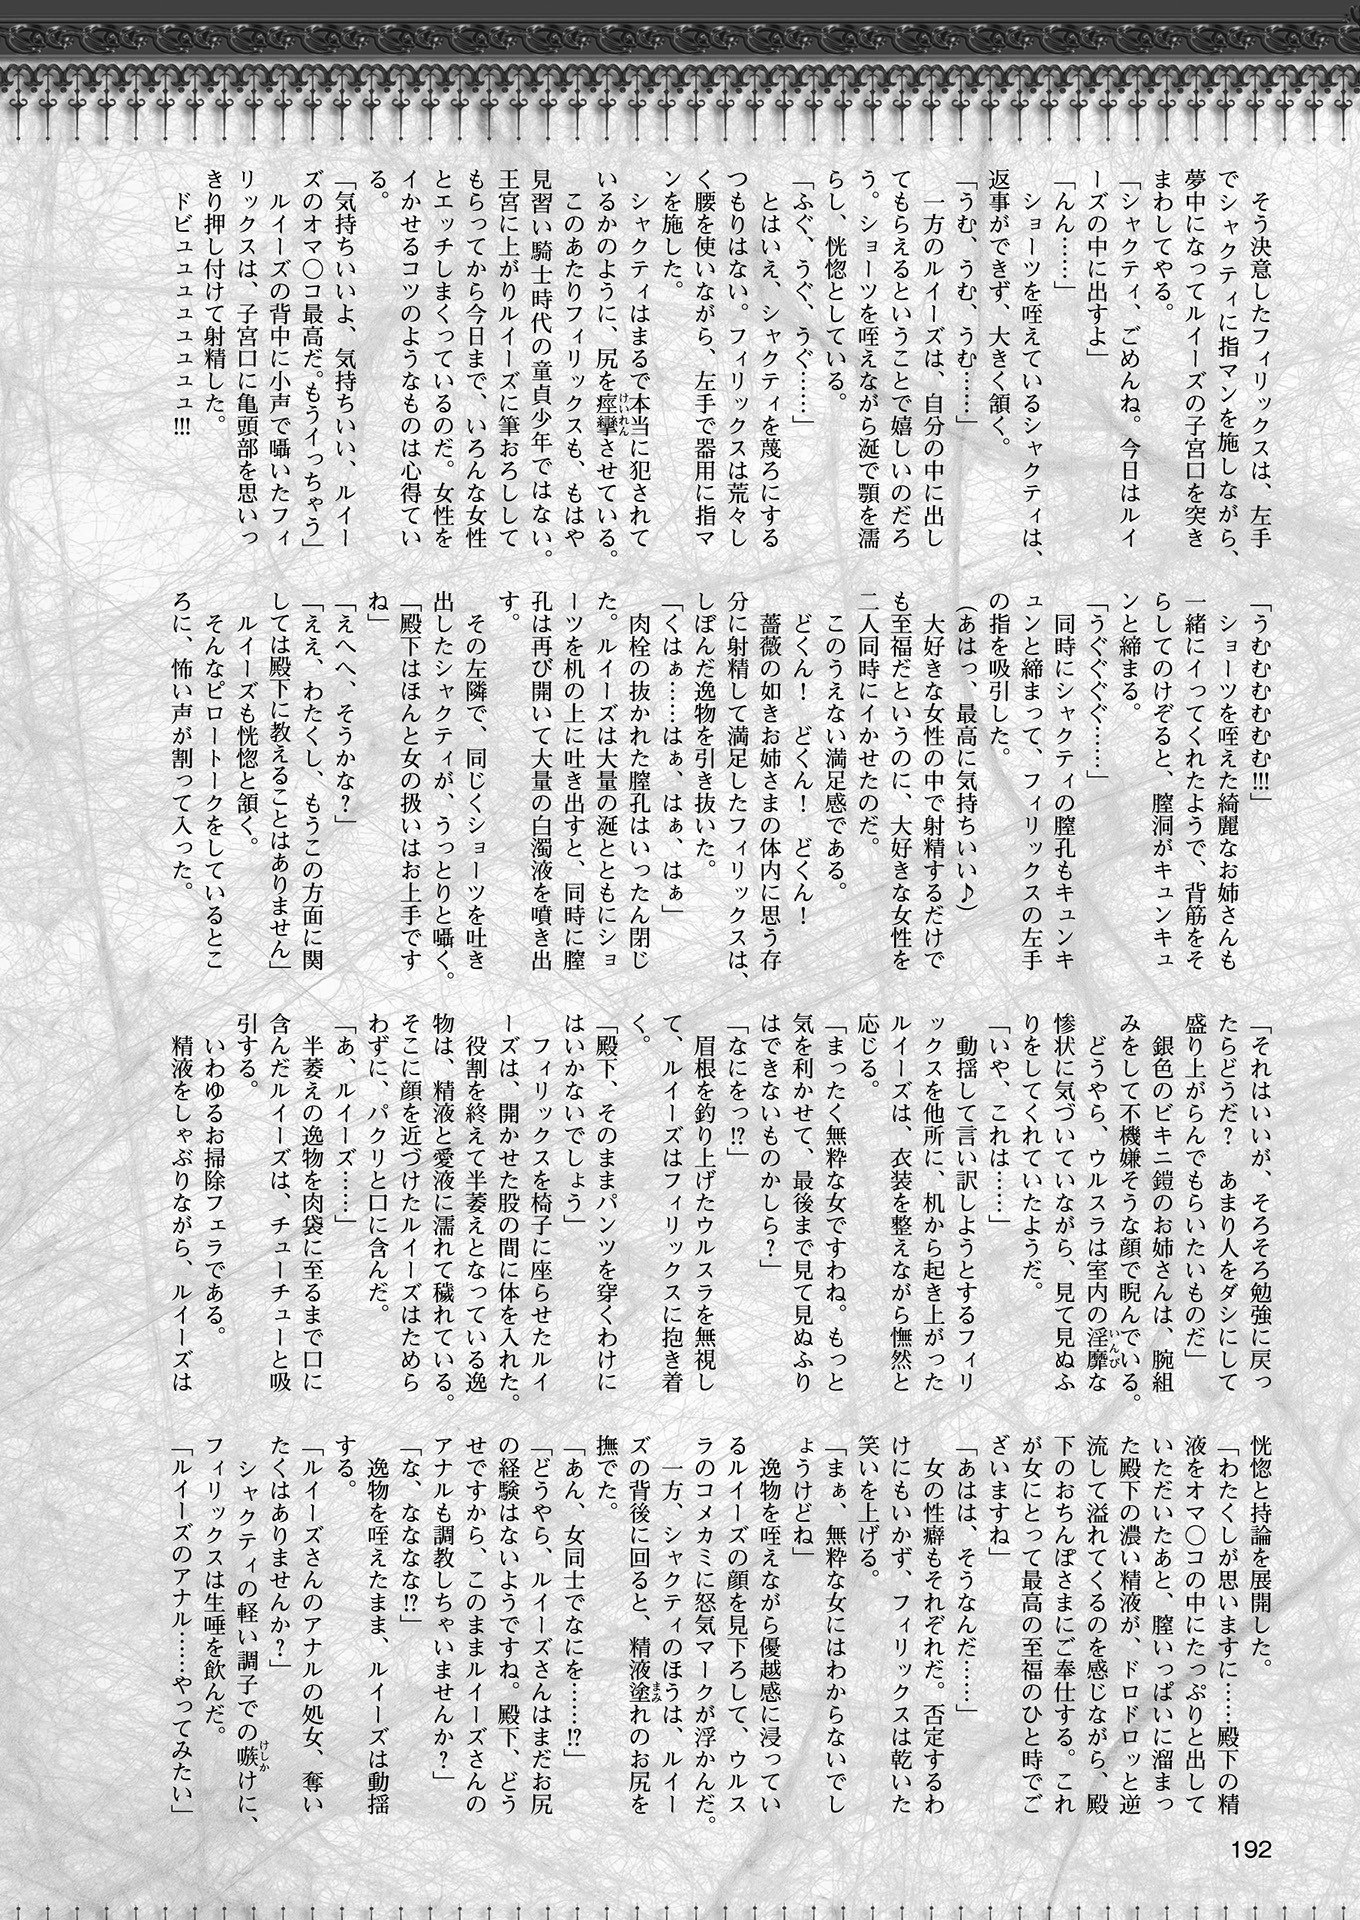 そう決意したフィリックスは、左手
でシャクティに指マンを施しながら、
夢中になってルイーズの子宮口を突き
まわしてやる。
「シャクティ、ごめんね。今日はルイ
ーズの中に出すよ」
「んん……」
ショーツを咥えているシャクティは、
返事ができず、大きく頷く。
「うむ、うむ、うむ……」
一方のルイーズは、自分の中に出し
てもらえるということで嬉しいのだろ
う。ショーツを咥えながら涎で顎を濡
らし、恍惚としている。
「ふぐ、うぐ、うぐ……」
とはいえ、シャクティを蔑ろにする
つもりはない。フィリックスは荒々し
く腰を使いながら、左手で器用に指マ
ンを施した。
シャクティはまるで本当に犯されて
いるかのように、尻を痙攣させている。
けいれん
このあたりフィリックスも、もはや
見習い騎士時代の童貞少年ではない。
王宮に上がりルイーズに筆おろしして
もらってから今日まで、いろんな女性
とエッチしまくっているのだ。女性を
イかせるコツのようなものは心得てい
る。
「気持ちいいよ、気持ちいい、ルイー
ズのオマ〇コ最高だ。もうイっちゃう」
ルイーズの背中に小声で囁いたフィ
リックスは、子宮口に亀頭部を思いっ
きり押し付けて射精した。
ドビュュュュュュュュ!!!
「うむむむむむむ!!!」
ショーツを咥えた綺麗なお姉さんも
一緒にイってくれたようで、背筋をそ
らしてのけぞると、膣洞がキュンキュ
ンと締まる。
「うぐぐぐぐ……」
同時にシャクティの膣孔もキュンキ
ュンと締まって、フィリックスの左手
の指を吸引した。
(あはっ、最高に気持ちいい♪)
大好きな女性の中で射精するだけで
も至福だというのに、大好きな女性を
二人同時にイかせたのだ。
このうえない満足感である。
どくん!　どくん!　どくん!
薔薇の如きお姉さまの体内に思う存
分に射精して満足したフィリックスは、
しぼんだ逸物を引き抜いた。
「くはぁ……はぁ、はぁ、はぁ」
肉栓の抜かれた膣孔はいったん閉じ
た。ルイーズは大量の涎とともにショ
ーツを机の上に吐き出すと、同時に膣
孔は再び開いて大量の白濁液を噴き出
す。
その左隣で、同じくショーツを吐き
出したシャクティが、うっとりと囁く。
「殿下はほんと女の扱いはお上手です
ね」
「えへへ、そうかな?」
「ええ、わたくし、もうこの方面に関
しては殿下に教えることはありません」
ルイーズも恍惚と頷く。
そんなピロートークをしているとこ
ろに、怖い声が割って入った。
「それはいいが、そろそろ勉強に戻っ
たらどうだ?　あまり人をダシにして
盛り上がらんでもらいたいものだ」
銀色のビキニ鎧のお姉さんは、腕組
みをして不機嫌そうな顔で睨んでいる。
どうやら、ウルスラは室内の淫靡な
いんび
惨状に気づいていながら、見て見ぬふ
りをしてくれていたようだ。
「いや、これは……」
動揺して言い訳しようとするフィリ
ックスを他所に、机から起き上がった
ルイーズは、衣装を整えながら憮然と
応じる。
「まったく無粋な女ですわね。もっと
気を利かせて、最後まで見て見ぬふり
はできないものかしら?」
「なにをっ!?」
眉根を釣り上げたウルスラを無視し
て、ルイーズはフィリックスに抱き着
く。
「殿下、そのままパンツを穿くわけに
はいかないでしょう」
フィリックスを椅子に座らせたルイ
ーズは、開かせた股の間に体を入れた。
役割を終えて半萎えとなっている逸
物は、精液と愛液に濡れて穢れている。
そこに顔を近づけたルイーズはためら
わずに、パクリと口に含んだ。
「あ、ルイーズ……」
半萎えの逸物を肉袋に至るまで口に
含んだルイーズは、チューチューと吸
引する。
いわゆるお掃除フェラである。
精液をしゃぶりながら、ルイーズは
恍惚と持論を展開した。
「わたくしが思いますに……殿下の精
液をオマ〇コの中にたっぷりと出して
いただいたあと、膣いっぱいに溜まっ
た殿下の濃い精液が、ドロドロッと逆
流して溢れてくるのを感じながら、殿
下のおちんぽさまにご奉仕する。これ
が女にとって最高の至福のひと時でご
ざいますね」
「あはは、そうなんだ……」
女の性癖もそれぞれだ。否定するわ
けにもいかず、フィリックスは乾いた
笑いを上げる。
「まぁ、無粋な女にはわからないでし
ょうけどね」
逸物を咥えながら優越感に浸ってい
るルイーズの顔を見下ろして、ウルス
ラのコメカミに怒気マークが浮かんだ。
一方、シャクティのほうは、ルイー
ズの背後に回ると、精液塗れのお尻を
まみ
撫でた。
「あん、女同士でなにを……!?」
「どうやら、ルイーズさんはまだお尻
の経験はないようですね。殿下、どう
せですから、このままルイーズさんの
アナルも調教しちゃいませんか?」
「な、なななな!?」
逸物を咥えたまま、ルイーズは動揺
する。
「ルイーズさんのアナルの処女、奪い
たくはありませんか?」
シャクティの軽い調子での嗾けに、
けしか
フィリックスは生唾を飲んだ。
「ルイーズのアナル……やってみたい」
192